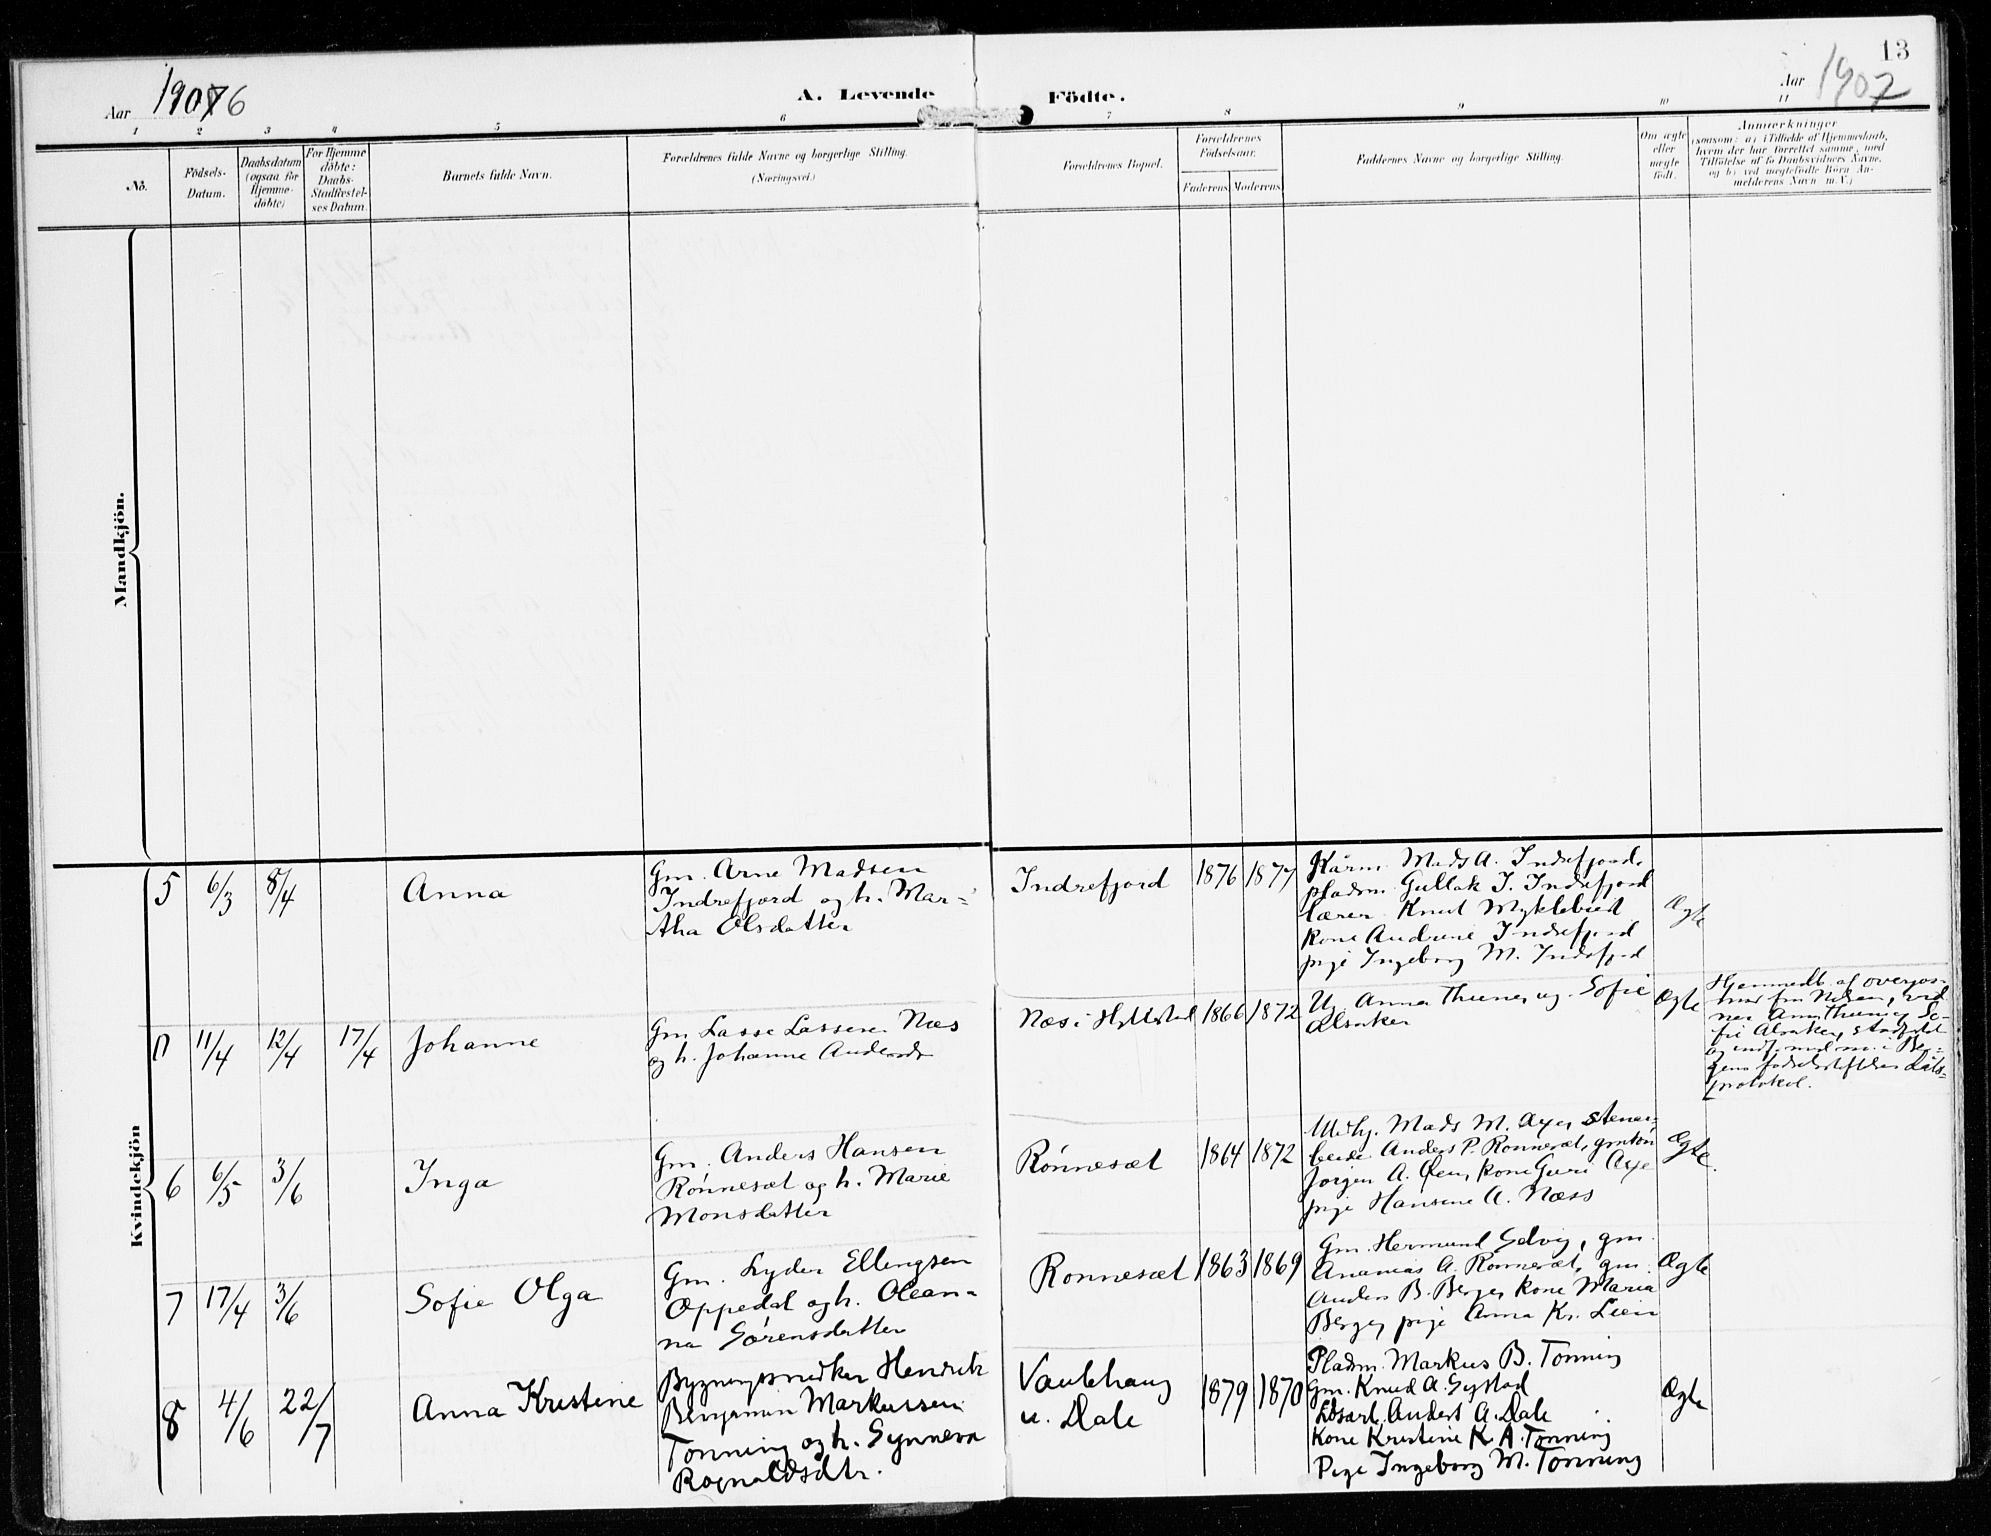 13
Aar 1906
A. Levende Födte.
Aar 1907
1 2 3 4 5 6 7 8 9 10 11
No.
Födsels-
Datum.
Daabsdatum
(ogsaa for
Hjemme-
döbte)
For Hjemme
döbte:
Daabs-
Stadfæstel-
ses Datum.
Barnets fulde Navn.
Forældrenes fulde Navne og borgerlige Stilling.
(Næringsvei.)
Forældrenes Bopæl.
Forældrenes
Födselsaar.
Faderens.
Moderens.
Faddernes Navne og borgerlige Stilling.
Om ægte
eller
uægte
födt.
Anmærkninger
(saasom: a) i Tilfælde af Hjemmedaab,
hvem der har forrettet samme, med
Tilföielse af to Daabsvidners Navne,
og b) ved uegtefödte Börn An-
melderens Navn m. V.)
Mandkjön.
Kvindekjön
5 6/3 8/4 Anna
Gm. Arne Madsen
Indrefjord og h. Mar=
tha Olsdatter
Indrefjord 1876 1877
Kårm. Mads A. Indrefjord,
pladsm. Gullak J. Indrefjord
lærer Knut Myklebust
kone Andrine Indrefjord
pige Ingeborg M. Indrefjord
Ægte
11/4 12/4 17/4 Johanne
Gm. Lasse Lassen Næs
og h. Johanne Andersdr
Næs i Hyllestad 1866 1872
Anna Thunes og Sofie
Alsaker
Ægte
Hjemmedb. af overjor-
mor fru Nilsen, vid
ner Anna Thunes, So-
fie Alsaker, stadfæstet
og indf. med no. i Ber-
gens fødselsstiftelses daabs-
protokol.
6 6/5 3/6 Inga
Gm. Anders Hansen
Rönnesæt og h. Marie
Monsdatter
Rönnesæt 1864 1872
Mads M. Øye, stenar-
beide Anders P. Rönnesæt,
Jörgen A. Øen, kone Guri Øye
pige Hansine A. Næss
Ægte.
7 17/4 3/6 Sofie Olga
Gm. Lyder Ellingsen
Oppedal og h. Olean-
na Sørensdatter
Ronnesæt 1863 1869
Gm. Hermund Selvig, gm.
Ananias A. Ronnesæt, gm.
Anders B. Berge, kone Maria
Berge, pige Anna Kr. Lien
Ægte
8 4/6 22/7 Anna Kristine
Bygningssnedker Henrik
Benjamin Markussen
Tonning og h. Synneva
Rognaldsdtr.
Vaulehaug
u. Dale
1879 1870
Pladsm. Markus B. Tonning
Gm. Knud A. Systad
Anders A. Dale
Kone Kristine K. A. Tonning
Pige Ingeborg M. Tonning
Ægte